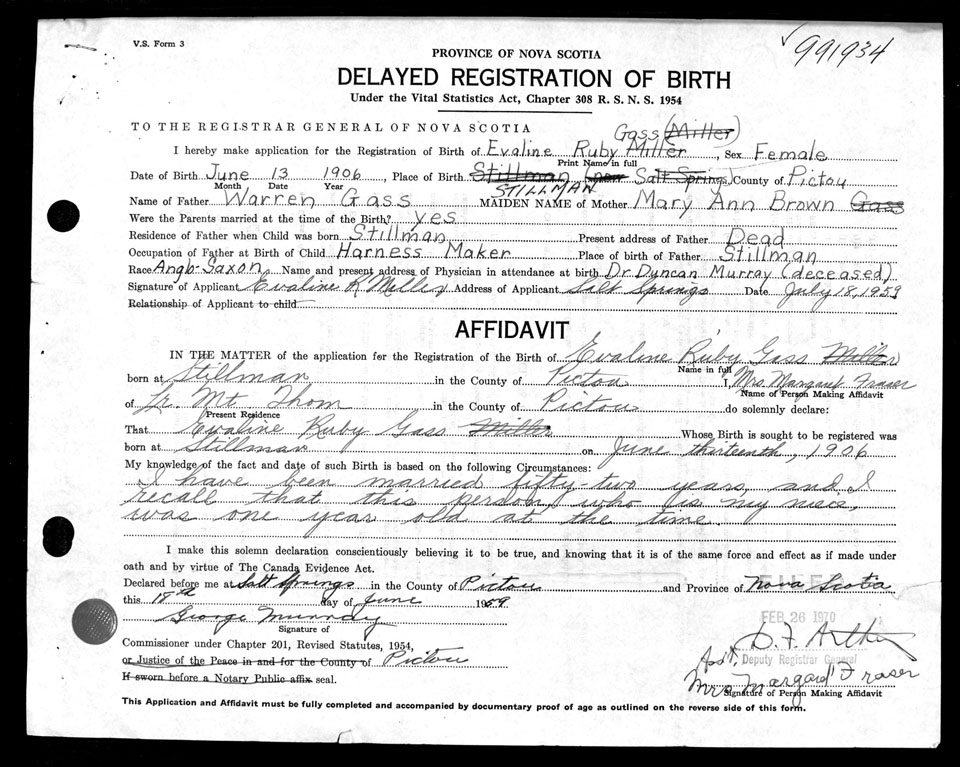 V.S. Form 3
991934
PROVINCE OF NOVA SCOTIA
DELAYED REGISTRATION OF BIRTH
Under the Vital Statistics Act, Chapter 308 R. S. N. S. 1954
TO THE REGISTRAR GENERAL OF NOVA SCOTIA Gass (Miller)
I hereby make application for the Registration of Birth of Evaline Ruby Miller, Sex Female
Print Name in full
Date of Birth June 13 1906, Place of Birth Stillman (now Salt Springs) County of Pictou
Month Date Year STILLMAN
Name of Father Warren Gass MAIDEN NAME of Mother Mary Ann Brown Gass
Were the Parents married at the time of the Birth? yes
Residence of Father when Child was born Stillman Present address of Father Dead
Occupation of Father at Birth of Child Harness Maker Place of birth of Father Stillman
Race Anglo-Saxon, Name and present address of Physician in attendance at birth Dr Duncan Murray (deceased)
Signature of Applicant Evaline R Miller Address of Applicant Salt Springs Date July 18, 1959
Relationship of Applicant to child
AFFIDAVIT
IN THE MATTER of the application for the Registration of the Birth of Evaline Ruby Gass Miller
Name in full
born at Stillman in the County of Pictou I, Mrs Margaret Fraser
Name of Person Making Affidavit
of Lr. Mt Thom in the County of Pictou do solemnly declare:
Present Residence
That Evaline Ruby Gass Miller Whose Birth is sought to be registered was
born at Stillman on June thirteenth, 1906
My knowledge of the fact and date of such Birth is based on the following Circumstances:
I have been married fifty-two years, and I
recall that this person, who is my niece,
was one year old at the time.
I make this solemn declaration conscientiously believing it to be true, and knowing that it is of the same force and effect as if made under
oath and by virtue of The Canada Evidence Act.
Declared before me at Salt Springs in the County of Pictou and Province of Nova Scotia
this 18th day of June 1959
FEB 26 1970
George Murray
Signature of
D. F. Arthur
Commissioner under Chapter 201, Revised Statutes, 1954,
Asst. Deputy Registrar General
or Justice of the Peace in and for the County of Pictou
Mrs Margaret Fraser
If sworn before a Notary Public affix seal.
Signature of Person Making Affidavit
This Application and Affidavit must be fully completed and accompanied by documentary proof of age as outlined on the reverse side of this form.